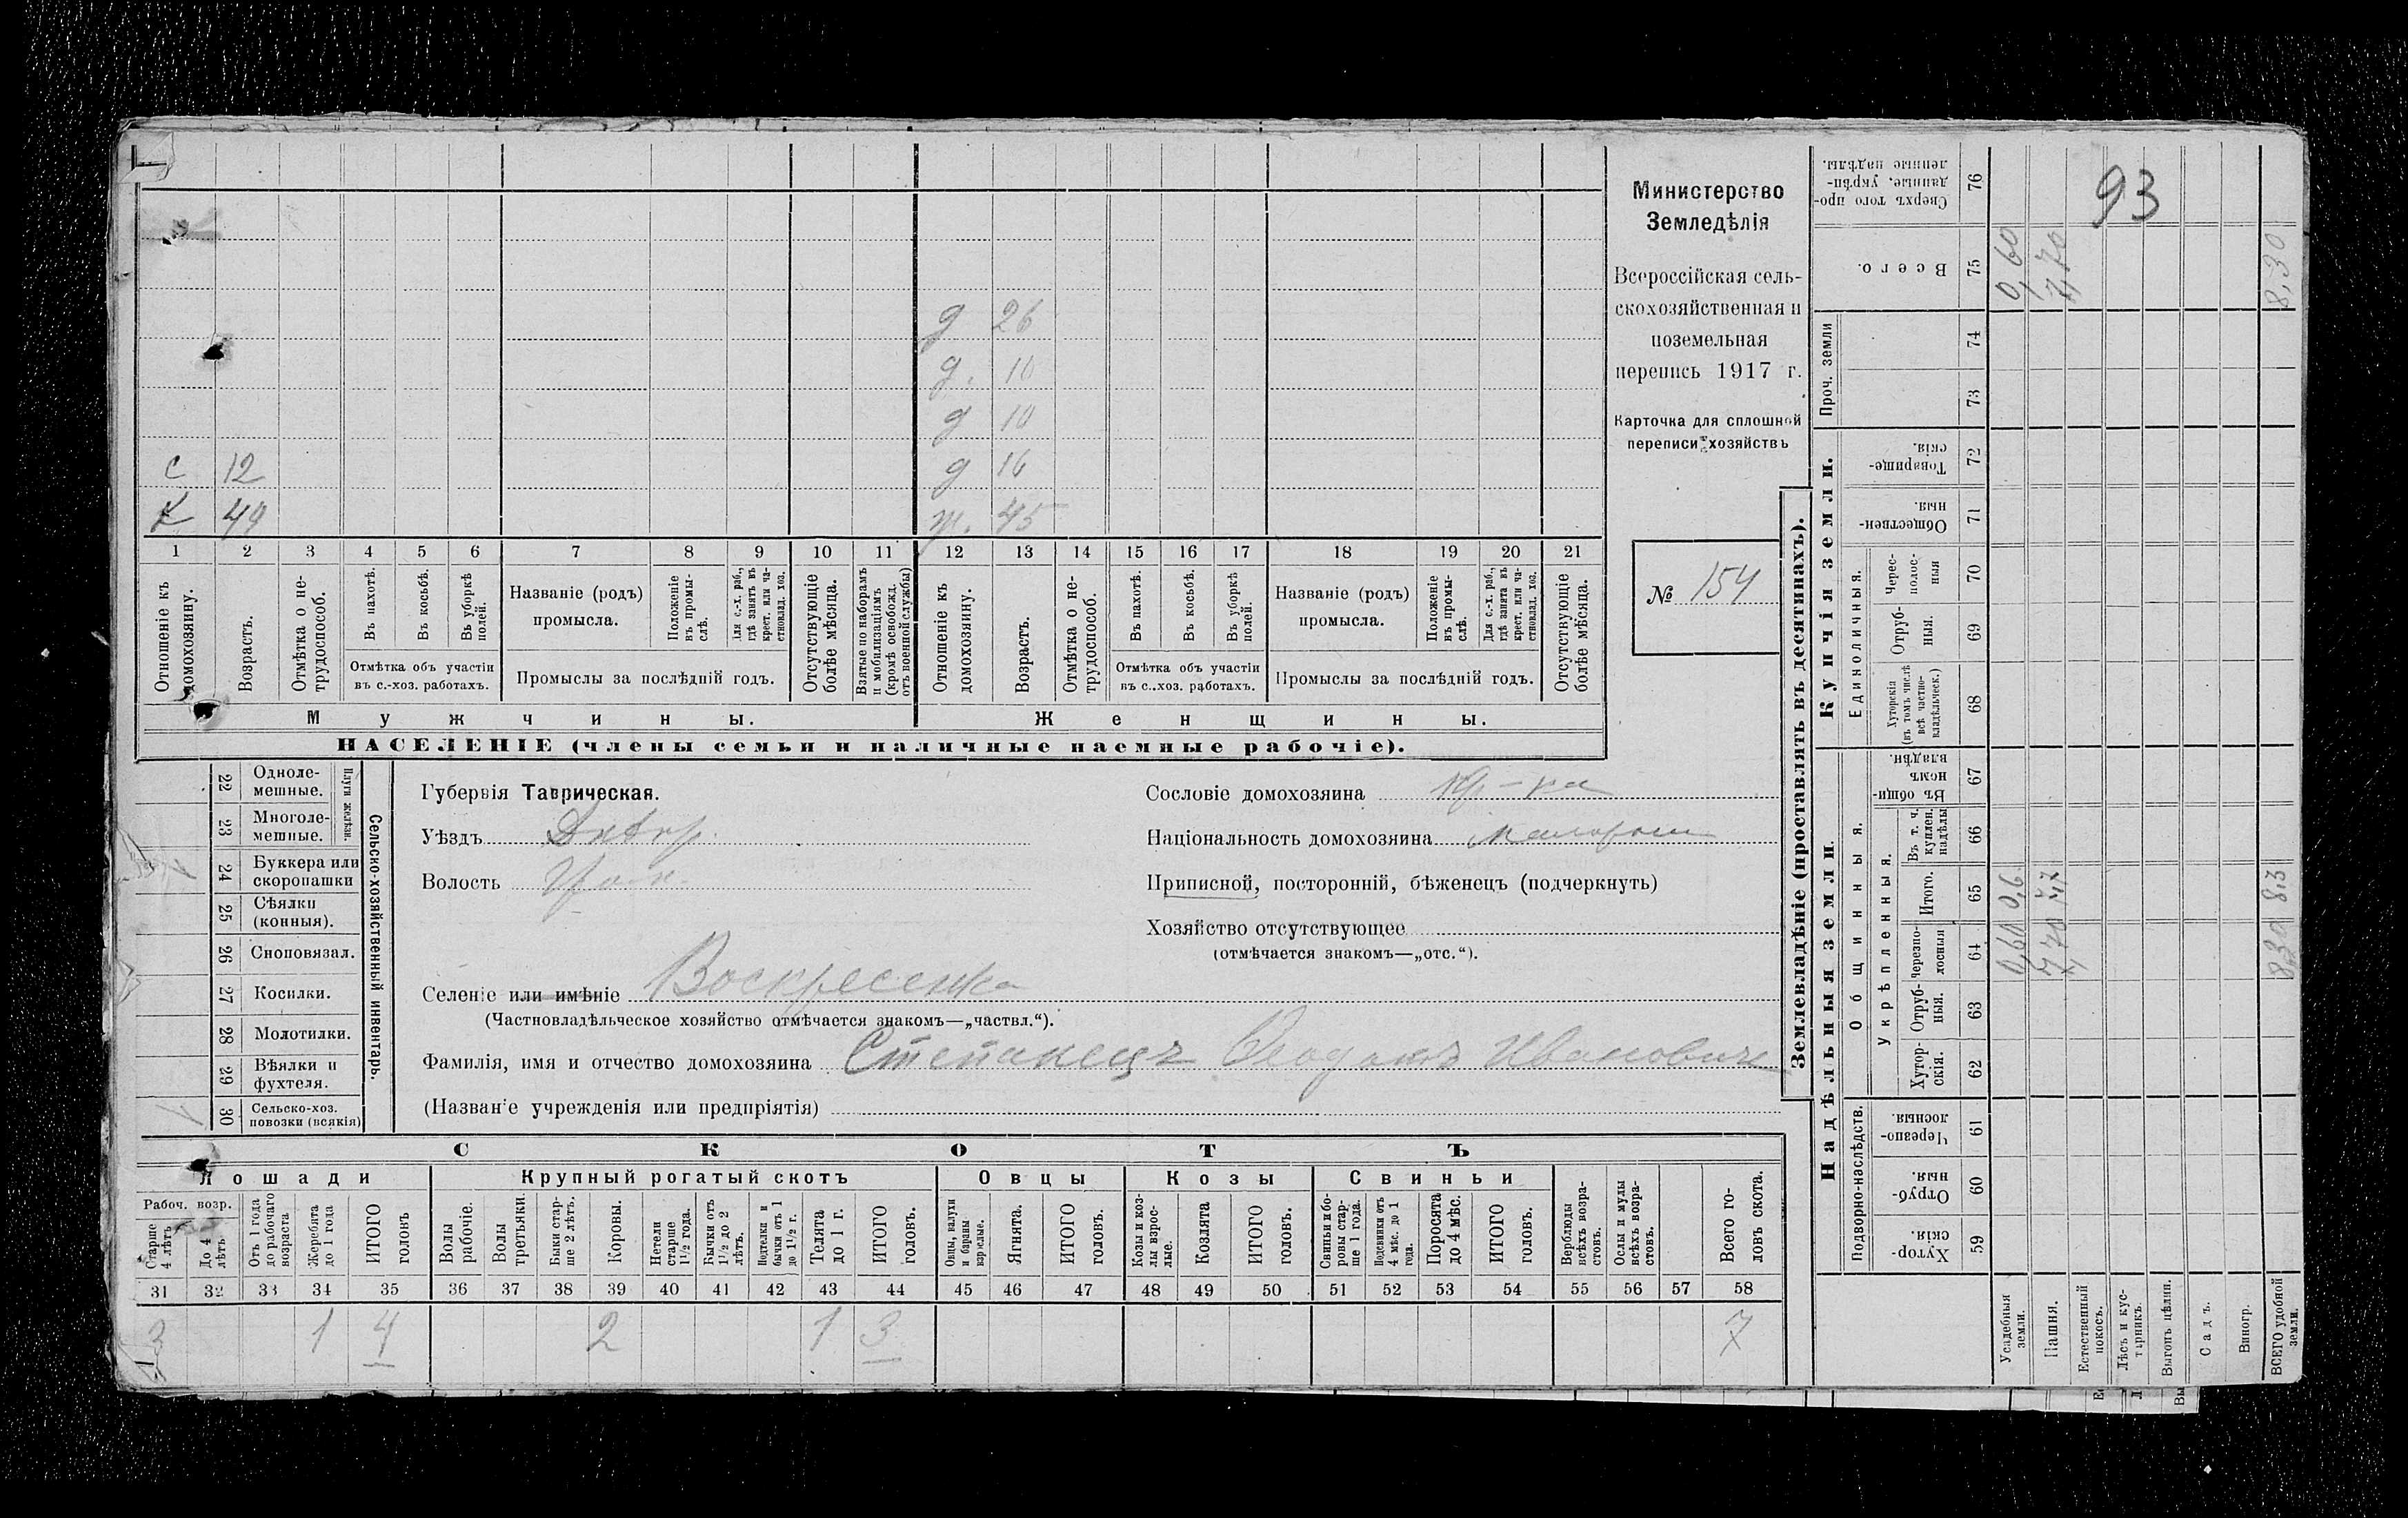 93
Министерство
Земледѣлія
Всероссійская сель-
скохозяйственная и
поземельная
перепись 1917 г.
Карточка для сплошной
переписи хозяйствъ
№ 154
д 26
д. 10
д 10
с 12 д 16
Х 44 ж. 45
1 2 3 4 5 6 7 8 9 10 11 12 13 14 15 16 17 18 19 20 21
Отношеніе къ домохозяину.
Возрастъ.
Отмѣтка о не-трудоспособ.
Въ пахотѣ.
Въ косьбѣ.
Въ уборкѣ полей.
Отмѣтка объ участіи
въ с.-хоз. работахъ.
Названіе (родъ)
промысла.
Положеніе въ промы-слѣ.
Для с.-х. раб., гдѣ занятъ въ крест. или ча-стновлад. хоз.
Промыслы за послѣдній годъ.
Отсутствующіе болѣе мѣсяца.
Взятые по наборамъ и мобилизаціямъ (кромѣ освобожд. отъ военной службы)
Отношеніе къ домохозяину.
Возрастъ.
Отмѣтка о не-трудоспособ.
Въ пахотѣ.
Въ косьбѣ.
Въ уборкѣ полей.
Отмѣтка объ участіи
въ с..хоз. работахъ.
Названіе (родъ)
промысла.
Положеніе въ промы-слѣ.
Для с.-х. раб., гдѣ занята въ крест. или ча-стновлад. хоз.
Промыслы за послѣдній годъ.
Отсутствующіе болѣе мѣсяца.
Мужчины. Женщины.
НАСЕЛЕНІЕ (члены семьи и наличные наемные рабочіе).
22 Одноле-мешные.
23 Многоле-мешные.
Плуги желѣзн.
24 Буккера или скоропашки
25 Сѣялки (конныя).
26 Сноповязал.
27 Косилки.
28 Молотилки.
29 Вѣялки и фухтеля.
30 Сельско-хоз. повозки (всякія) 1
Сельско-хозяйственный инвентарь.
Губернія Таврическая.
Уѣздъ Днѣпр.
Волость
Селеніе или имѣніе Воскресенка
(Частновладѣльческое хозяйство отмѣчается знакомъ—„частвл.“).
Фамилія, имя и отчество домохозяина Степанецъ Феодотъ Ивановичъ
(Названіе учрежденія или предпріятія)
Сословіе домохозяина кр-на
Національность домохозяина малоросс
Приписной, посторонній, бѣженецъ (подчеркнуть)
Хозяйство отсутствующее
(отмѣчается знакомъ—„отс.“).
СКОТЪ
Лошади Крупный рогатый скотъ Овцы Козы Свиньи
Рабоч. возр.
Старше 4 лѣтъ
До 4 лѣтъ
Отъ 1 года до рабочаго возраста
Жеребята до 1 года
ИТОГО головъ
Волы рабочіе.
Волы третьяки.
Быки стар-ше 2 лѣтъ.
Коровы.
Нетели старше 1½ года.
Бычки отъ 1½ до 2 лѣтъ.
Подтелки и бычки отъ 1 до 1½ г.
Телята до 1 г.
ИТОГО головъ.
Овцы, валухи и бараны взрослые.
Ягнята.
ИТОГО головъ.
Козы и коз-лы взрос-лые.
Козлята
ИТОГО головъ.
Свиньи и бо-ровы стар-ше 1 года.
Подсвинки отъ 4 мѣс. до 1 года.
Поросята до 4 мѣс.
ИТОГО головъ.
Верблюды всѣхъ возра-стовъ.
Ослы и мулы всѣхъ возра-стовъ.
Всего го-ловъ скота.
31 32 33 34 35 36 37 38 39 40 41 42 43 44 45 46 47 48 49 50 51 52 53 54 55 56 57 58
3 1 4 2 1 3 7
Землевладѣніе (проставлять въ десятинахъ).
Надѣльныя земли.
Купчія земли.
Проч. земли
Подворно-наслѣдств.
Общинныя.
Укрѣпленныя.
Единоличныя.
Сверхъ того про-данные, укрѣп-ленные надѣлы. 76
Всего. 75 0,60 7,70 8,30
74
73
Товарище-скія. 72
Обществен-ныя. 71
Черес-полос-ныя 70
Отруб-ныя. 69
Хуторскія (въ томъ числѣ всѣ частно-владѣльческ.) 68
Въ общин-номъ владѣн. 67
Въ т. ч. куплен. надѣлы 66
Итого. 65 0,6 7,7 8,3
Черезпо-лосныя 64 0,60 7,70 8,30
Отруб-ныя. 63
Хутор-скія. 62
Черезпо-лосныя 61
Отруб-ныя 60
Хутор-скія. 59
Усадебныя земли.
Пашня.
Естественный покосъ.
Лѣсъ и кус-тарникъ.
Выгонъ цѣлин.
Садъ.
Виногр.
ВСЕГО удобной земли.